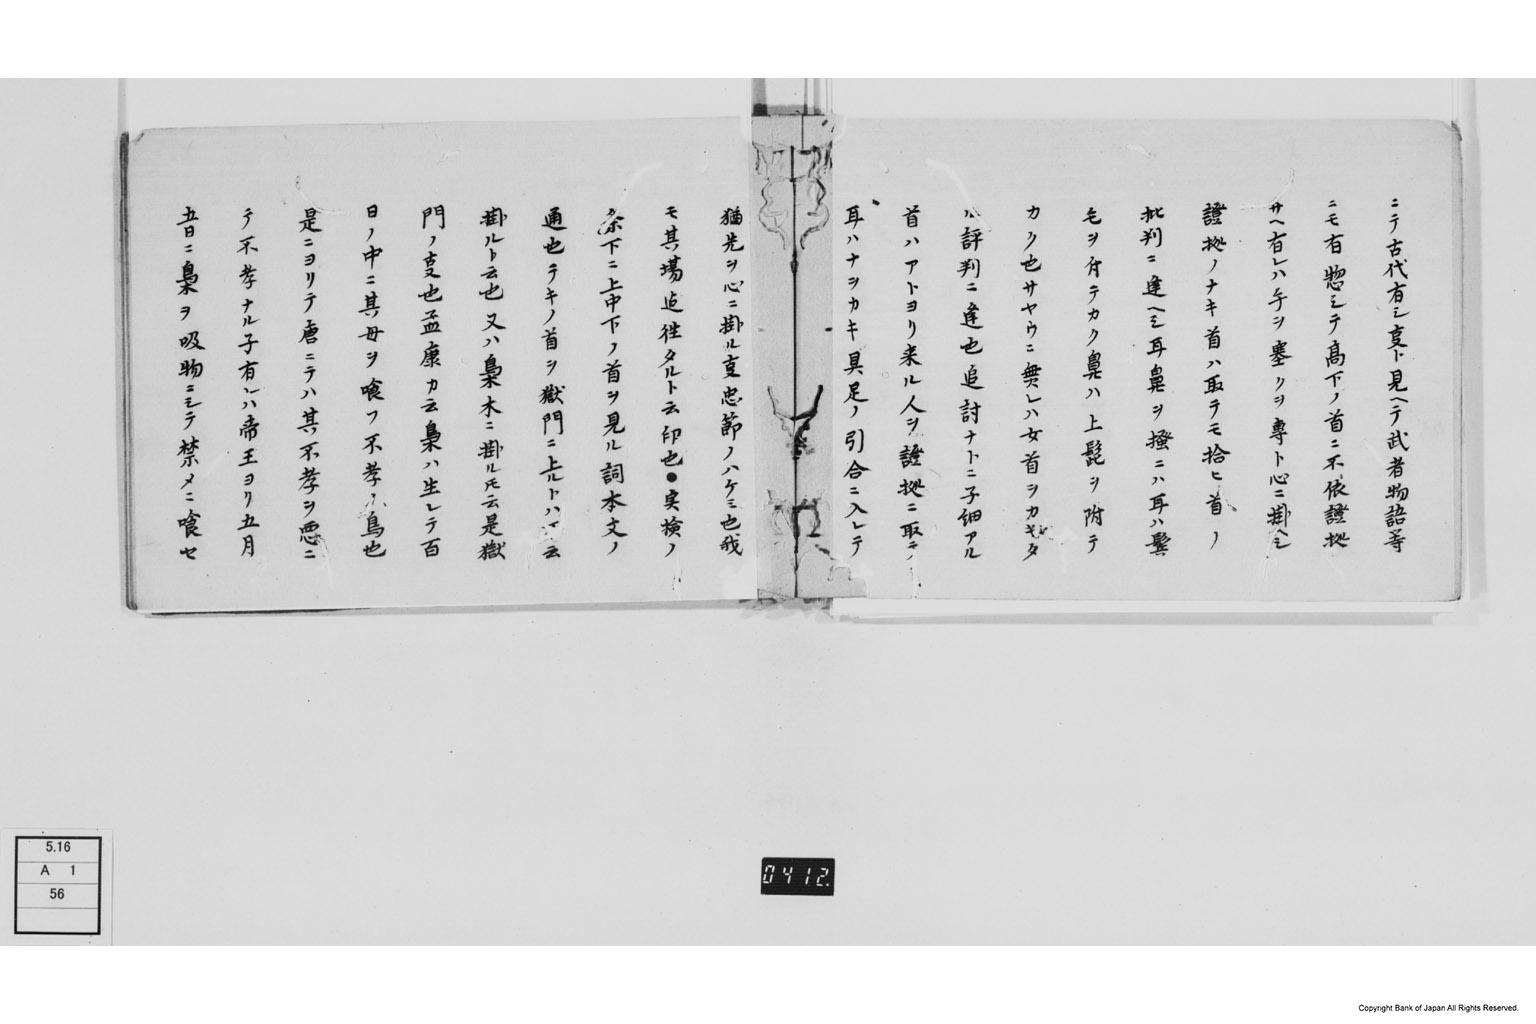 ニテ古代有シ㕝ト見ヘテ武者物語等
ニモ有惣シテ高下ノ首ニ不依證拠
サヘ有レハ手ヲ塞クヲ専ト心ニ掛ヘシ
證拠ノナキ首ハ取テモ拾ヒ首ノ
批判ニ逢ヘシ耳鼻ヲ掻ニハ耳ハ鬢
毛ヲ付テカク鼻ハ上髭ヲ附テ
カク也サヤウニ無レハ女首ヲカキタ
ル評判ニ逢也追討ナトニ子細アル
首ハアトヨリ来ル人ヲ證拠ニ取テ
耳ハナヲカキ具足ノ引合ニ入レテ
猶先ヲ心ニ掛ル㕝忠節ノハケミ也我
モ其場迠往タルト云印也●実検ノ
条下ニ上中下ノ首ヲ見ル詞本文ノ
通也テキノ首ヲ獄門ニ上ルトハ云
掛ルト云也又ハ梟木ニ掛ル𪜈云是獄
門ノ㕝也孟康カ云梟ハ生レテ百
日ノ中ニ其母ヲ喰フ不孝ノ鳥也
是ニヨリテ唐ニテハ其不孝ヲ悪ニ
テ不孝ナル子有レハ帝王ヨリ五月
五日ニ梟ヲ吸物ニシテ禁メニ喰セ
5.16
A 1
56
0412.
Copyright Bank of Japan All Rights Reserved.